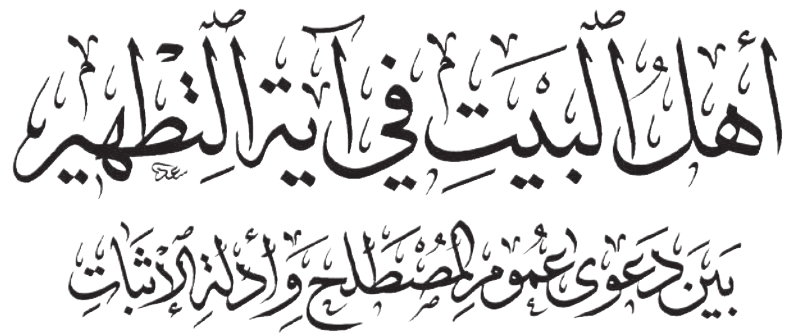 أهلُ ٱلبَيْتِ فِي آية ٱلتِطْهير
بَيْن دَعوى عُموم المُصْطَلح وَأدلة الإثبَاتِ